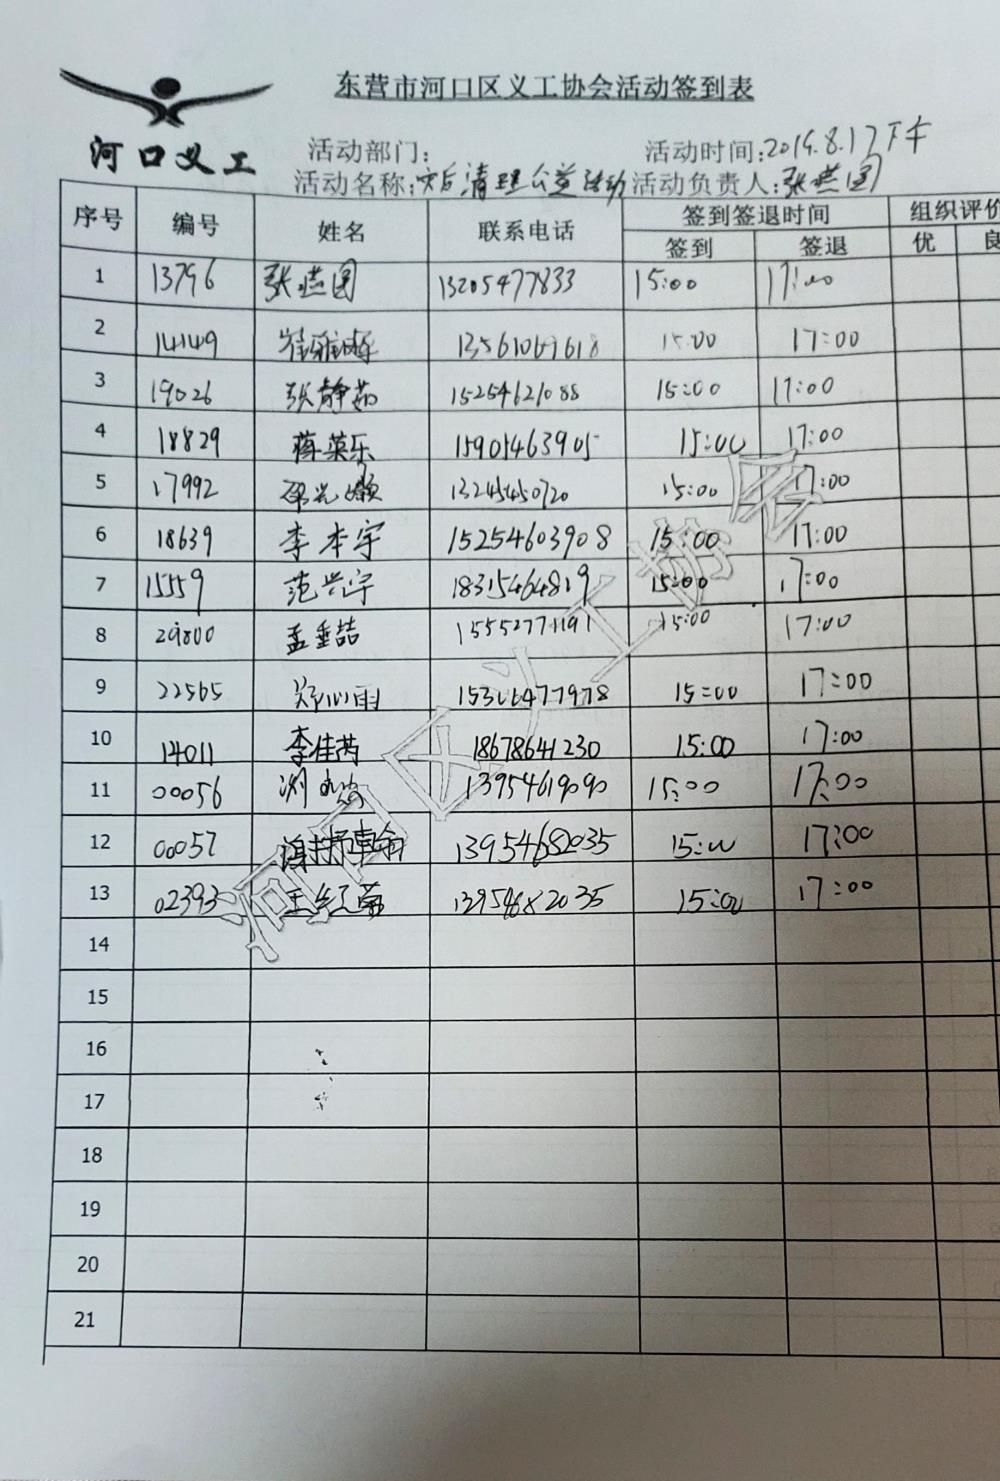 东营市河口区义工协会活动签到表
河口义工
活动部门: 活动时间:2019.8.17下午
活动名称:灾后清理公益活动 活动负责人:张燕图
序号 编号 姓名 联系电话 签到签退时间 组织评价
签到 签退 优 良
1 13796 张燕图 13205477833 15:00 17:00
2 14149 13561069618 15:00 17:00
3 19026 张静茹 15254621088 15:00 17:00
4 18829 蒋英乐 15905463905 15:00 17:00
5 17992 13245450720 15:00 17:00
6 18639 李本宇 15254603908 15:00 17:00
7 15559 范兴宇 18315464819 15:00 17:00
8 29800 孟垂喆 15552771191 15:00 17:00
9 22565 郑心雨 15306477978 15:00 17:00
10 14011 李佳芮 18678641230 15:00 17:00
11 00056 13954619090 15:00 17:00
12 00057 13954682035 15:00 17:00
13 02393 13954682035 15:00 17:00
14
15
16
17
18
19
20
21
河口区义工协会